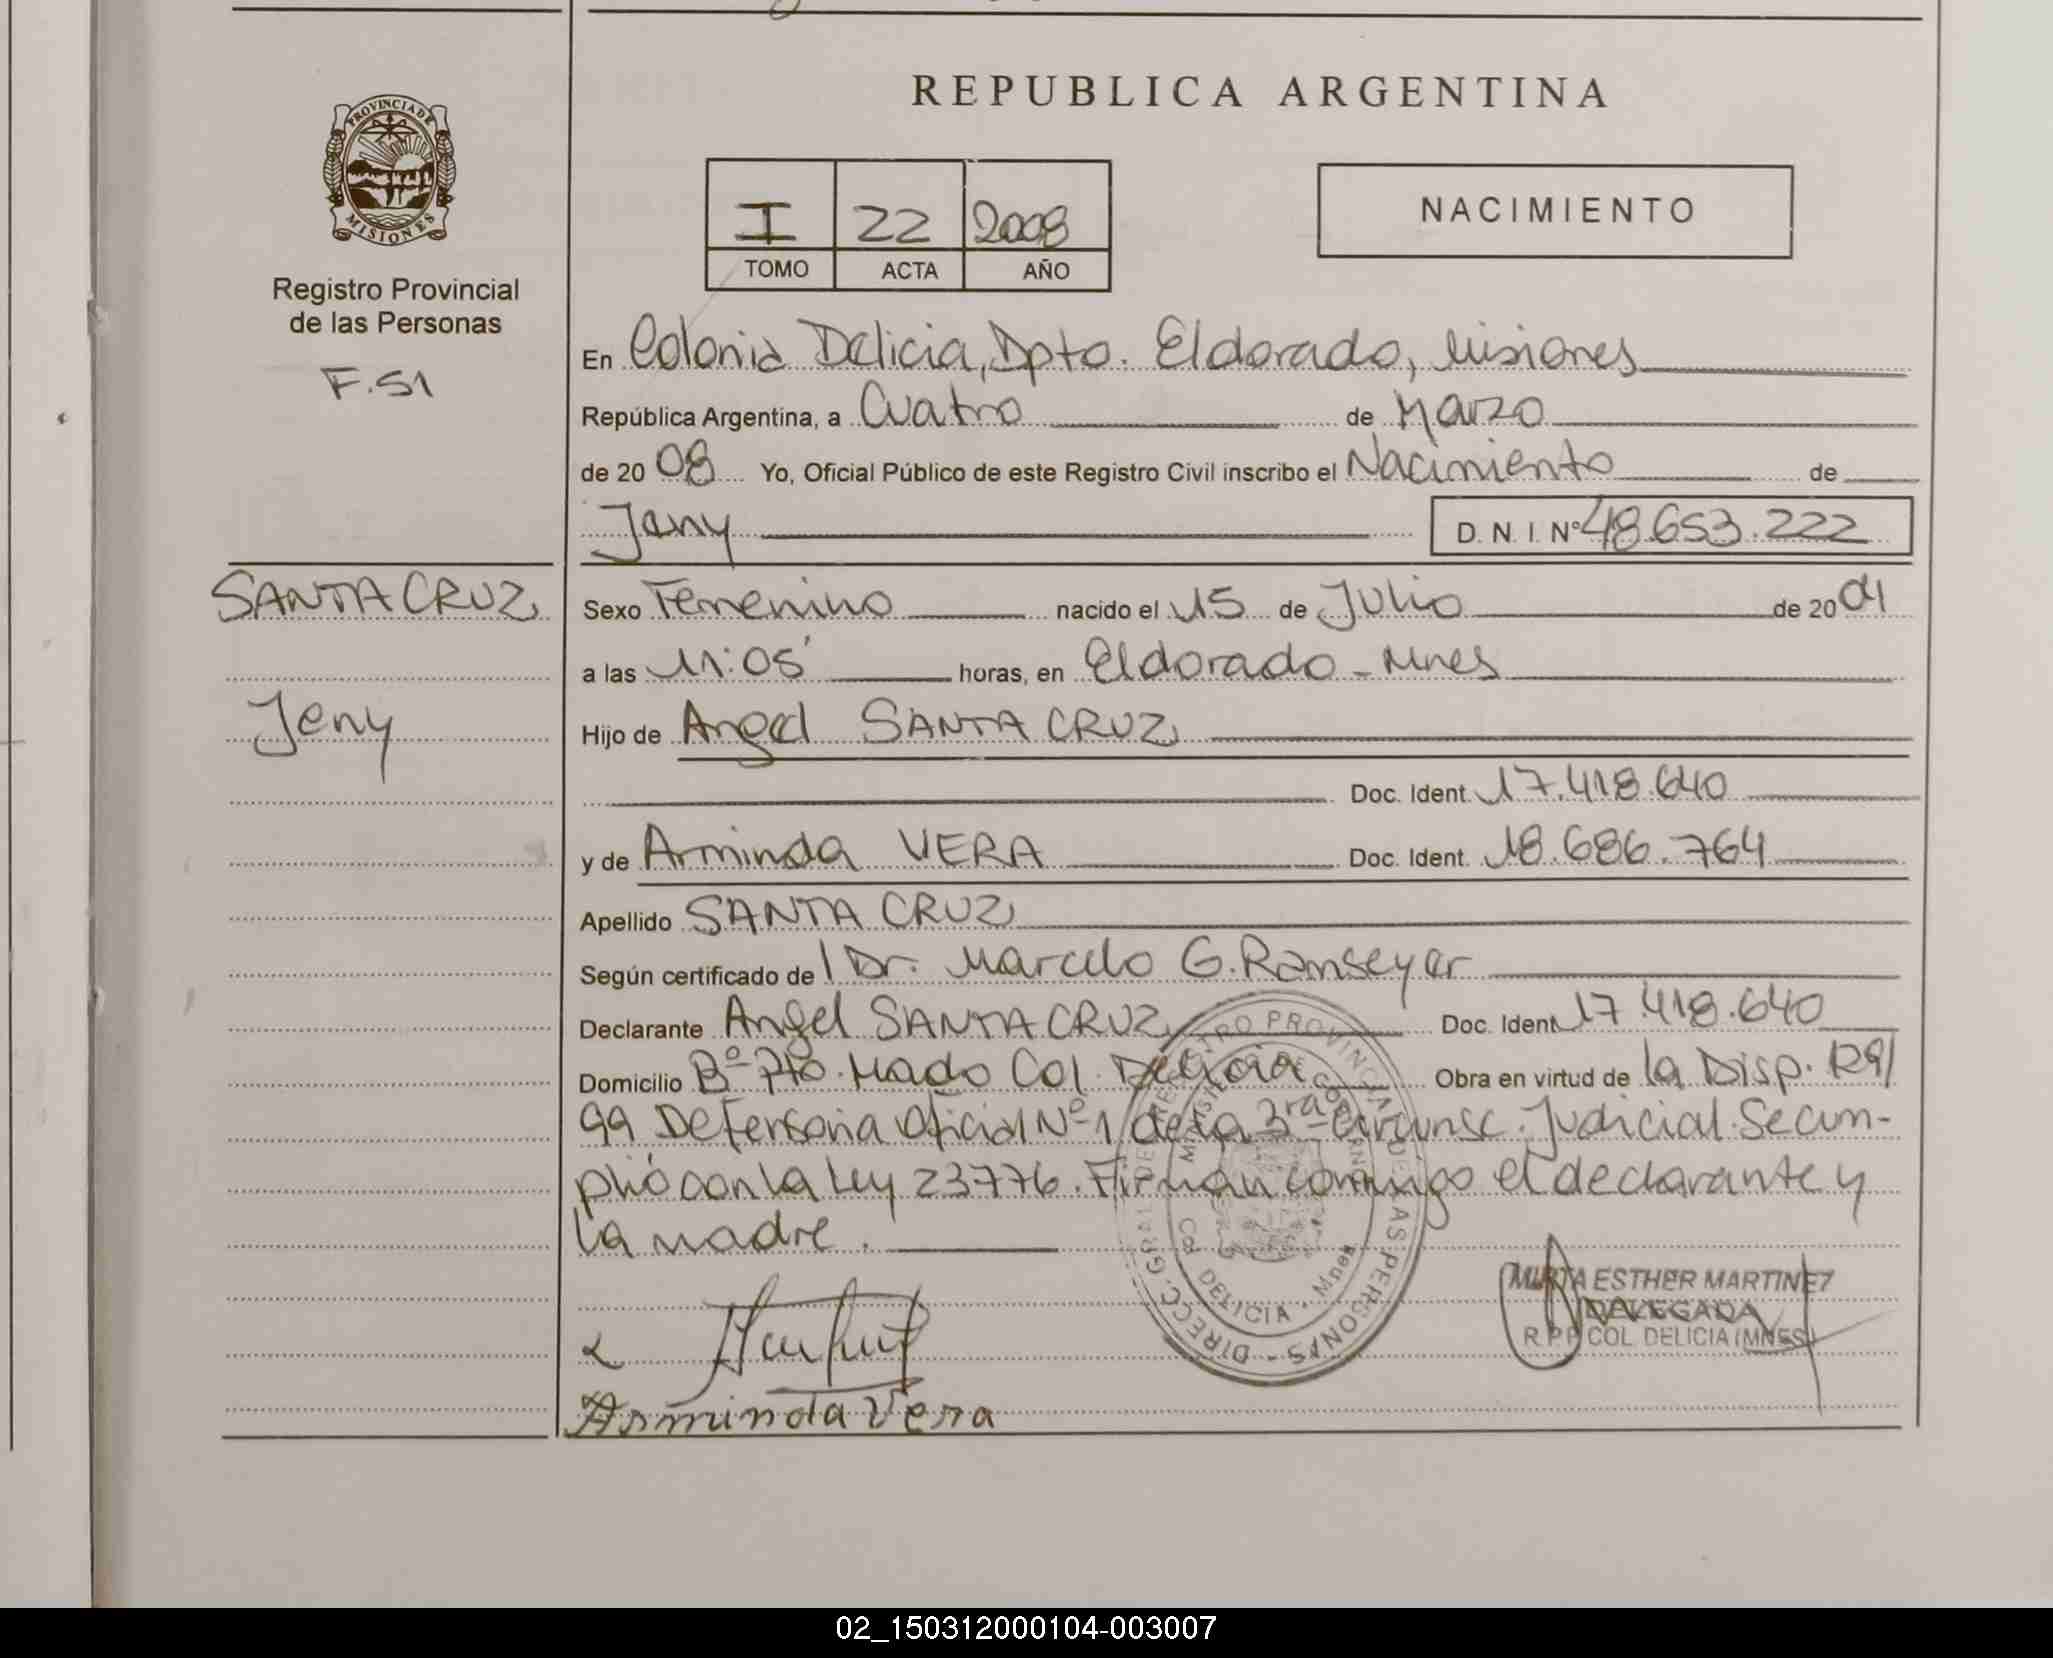 REPUBLICA ARGENTINA
PROVINCIA DE
MISIONES
Registro Provincial
de las Personas
F.51
I 22 2008
TOMO ACTA AÑO
NACIMIENTO
En Colonia Delicia, Dpto. Eldorado, Misiones
República Argentina, a Cuatro de Marzo
de 20 08 Yo, Oficial Público de este Registro Civil inscribo el Nacimiento de
Jeny D. N. I. Nº 48.653.222
SANTA CRUZ
Jeny
Sexo Femenino nacido el 15 de Julio de 20 01
a las 11:05' horas, en Eldorado - Mnes
Hijo de Angel SANTA CRUZ
Doc. Ident. 17.418.640
y de Arminda VERA Doc. Ident. 18.686.764
Apellido SANTA CRUZ
Según certificado de l Dr. Marcelo G. Ramseyer
Declarante Angel SANTA CRUZ Doc. Ident. 17.418.640
Domicilio Bº Pto. Mado Col. Delicia Obra en virtud de la Disp. 129/
99 Defensoria Oficial Nº 1 de la 3ra Circunsc. Judicial. Se cum-
plió con la Ley 23776. Firman conmigo el declarante y
la madre.
DIRECC. GRAL. DE REGISTRO PROVINCIAL DE LAS PERSONAS
MINISTERIO DE GOBIERNO
Col DELICIA - Mnes
MIRTA ESTHER MARTINEZ
DELEGADA
R.P.P. COL DELICIA (MNES)
Arminda Vera
02_150312000104-003007